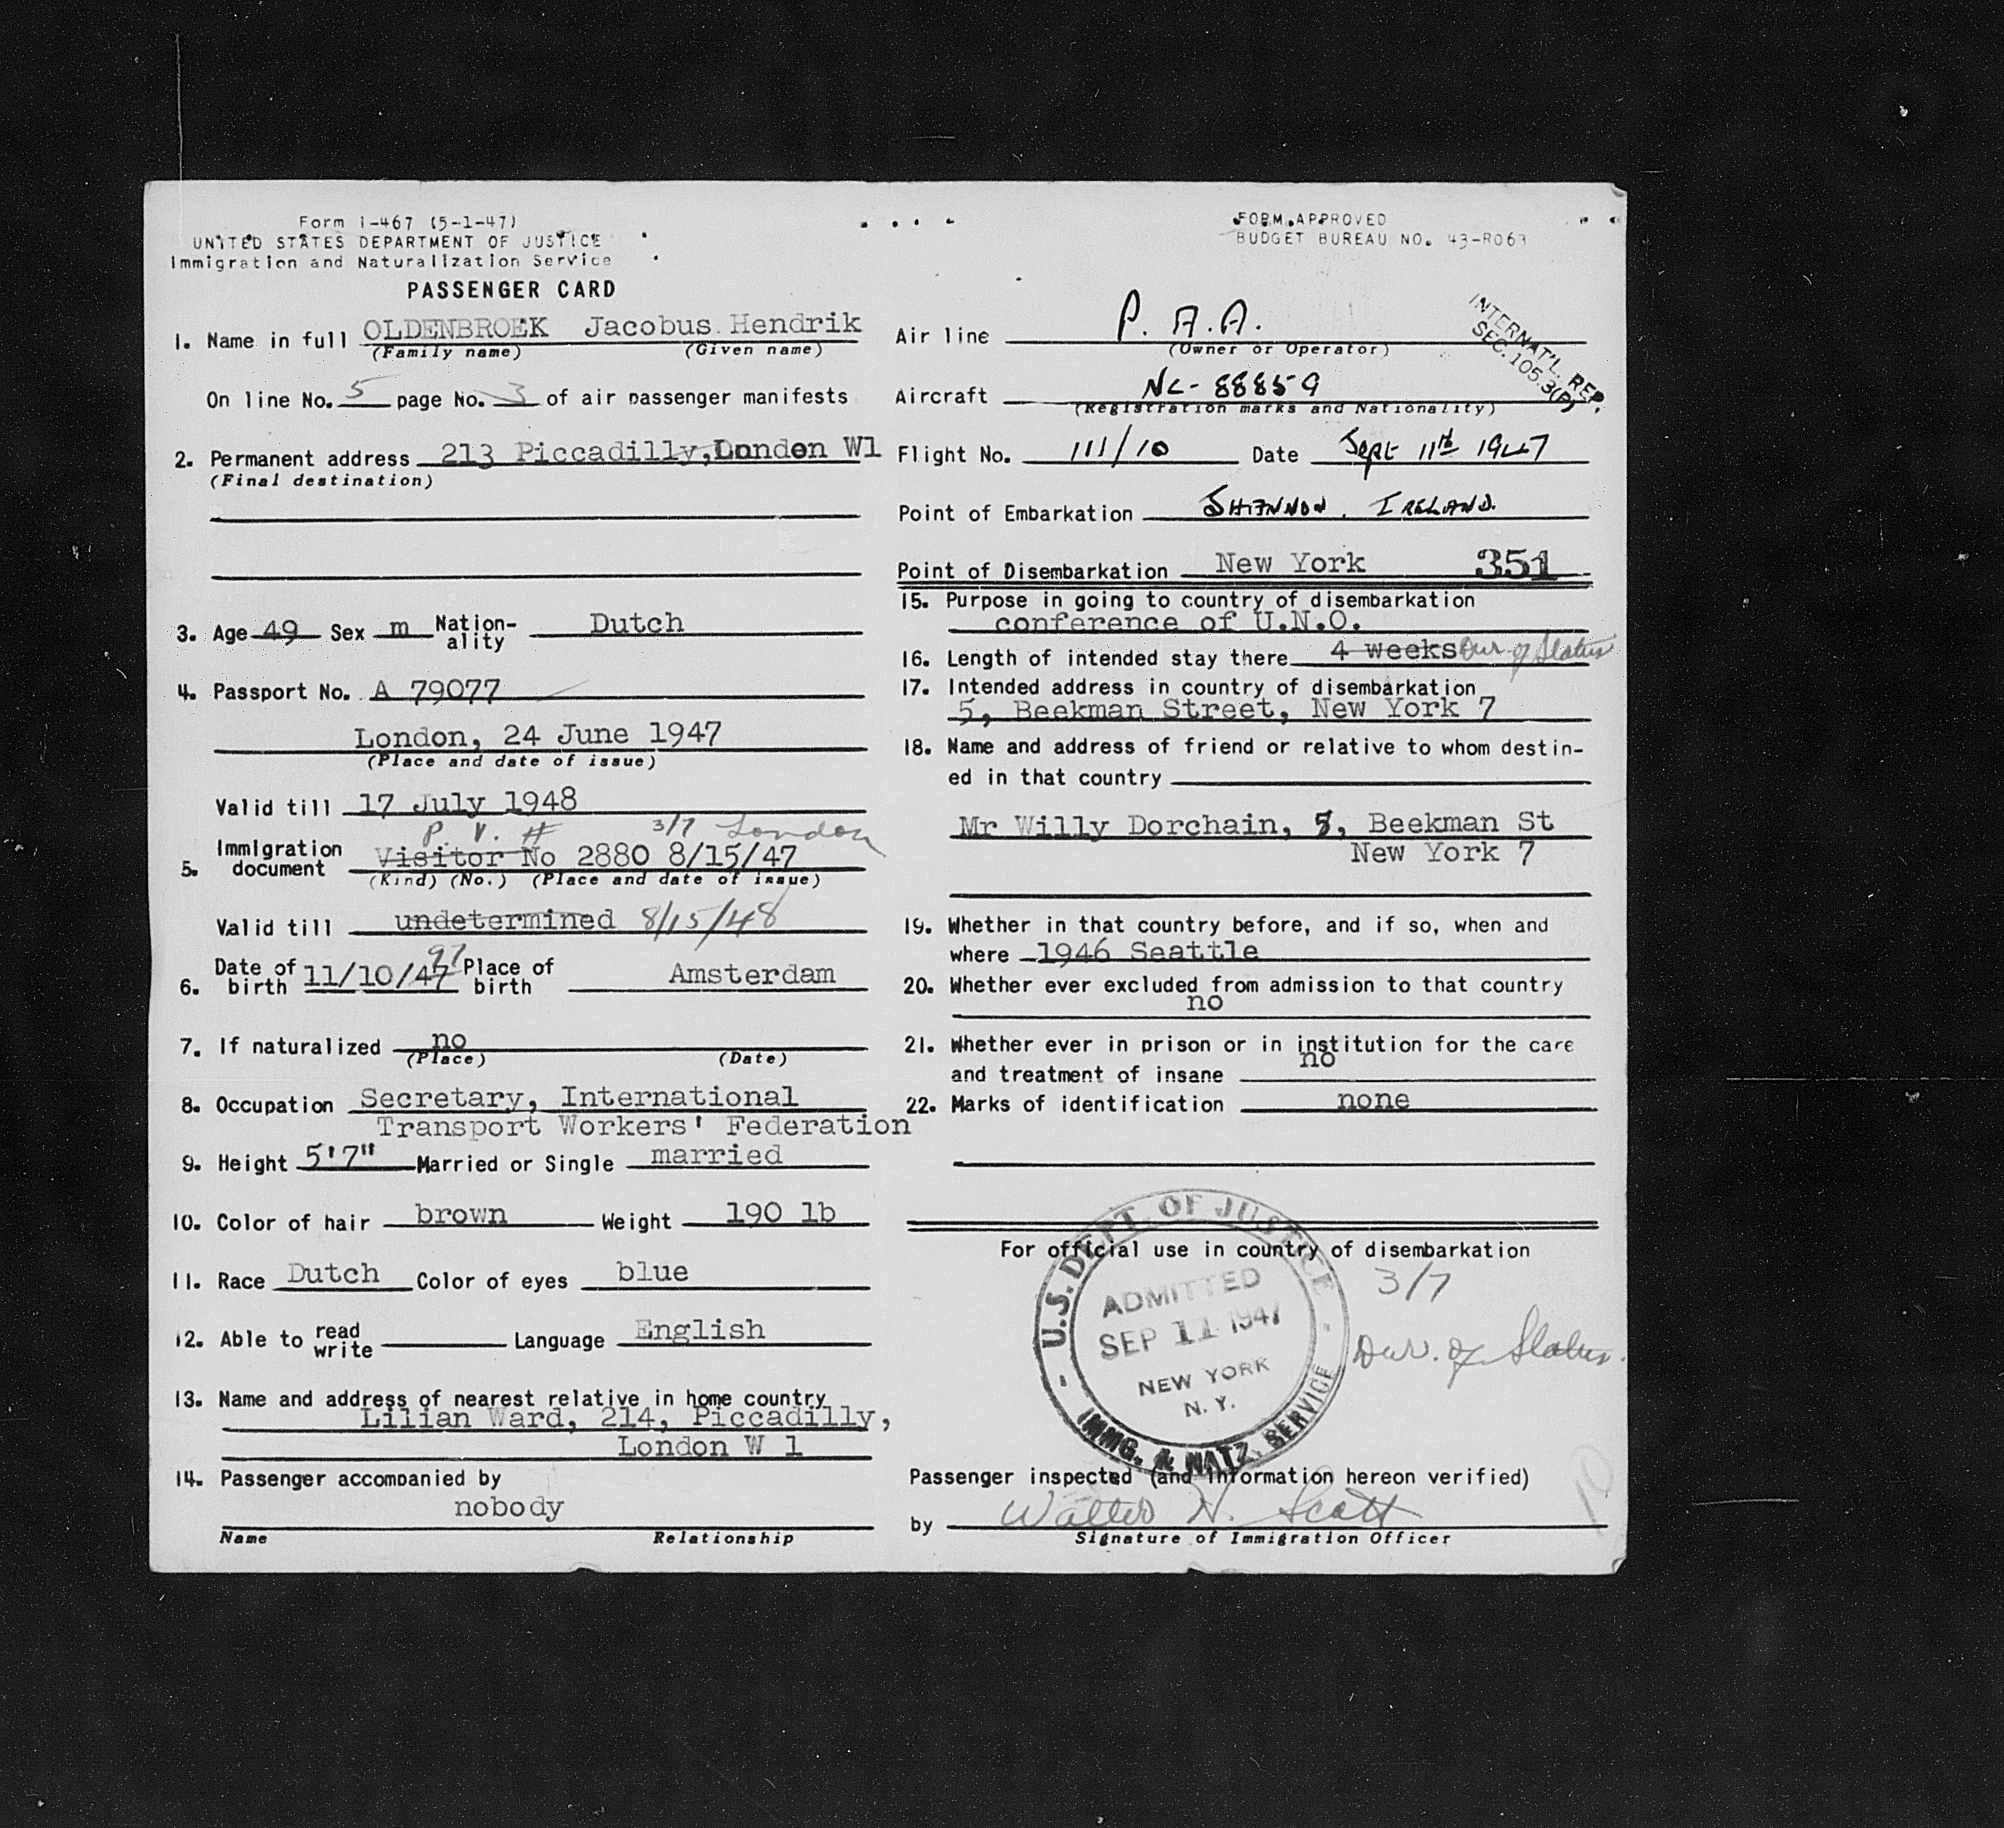 Form I-467 (5-1-47)
UNITED STATES DEPARTMENT OF JUSTICE
Immigration and Naturalization Service
PASSENGER CARD
FORM APPROVED
BUDGET BUREAU NO. 43-R063
INTERNAT'L. REP.
SEC. 105.3(P)
1. Name in full OLDENBROEK Jacobus Hendrik
(Family name) (Given name)
On line No. 5 page No. 3 of air passenger manifests
2. Permanent address 213 Piccadilly, London W1
(Final destination)
3. Age 49 Sex m Nation-ality Dutch
4. Passport No. A 79077
London, 24 June 1947
(Place and date of issue)
Valid till 17 July 1948
P. V. # 3/7 London
5. Immigration document Visitor No 2880 8/15/47
(Kind) (No.) (Place and date of issue)
Valid till undetermined 8/15/48
97
6. Date of birth 11/10/47 Place of birth Amsterdam
7. If naturalized no
(Place) (Date)
8. Occupation Secretary, International
Transport Workers' Federation
9. Height 5'7" Married or Single married
10. Color of hair brown Weight 190 lb
11. Race Dutch Color of eyes blue
12. Able to read write Language English
13. Name and address of nearest relative in home country
Lilian Ward, 214, Piccadilly,
London W 1
14. Passenger accompanied by
nobody
Name Relationship
Air line P. A. A.
(Owner or Operator)
Aircraft NC-88859
(Registration marks and Nationality)
Flight No. 111/10 Date Sept 11th 1947
Point of Embarkation SHANNON, IRELAND.
Point of Disembarkation New York 351
15. Purpose in going to country of disembarkation
conference of U.N.O.
16. Length of intended stay there 4 weeks Dur. of Status
17. Intended address in country of disembarkation
5, Beekman Street, New York 7
18. Name and address of friend or relative to whom destin-
ed in that country
Mr Willy Dorchain, 5, Beekman St
New York 7
19. Whether in that country before, and if so, when and
where 1946 Seattle
20. Whether ever excluded from admission to that country
no
21. Whether ever in prison or in institution for the care
no
and treatment of insane
22. Marks of identification none
For official use in country of disembarkation
3/7
Dur. of Status.
U.S. DEPT. OF JUSTICE
ADMITTED
SEP 11 1947
NEW YORK
N. Y.
IMMG. & NATZ. SERVICE
Passenger inspected (and information hereon verified)
by Walter H. Scott
Signature of Immigration Officer